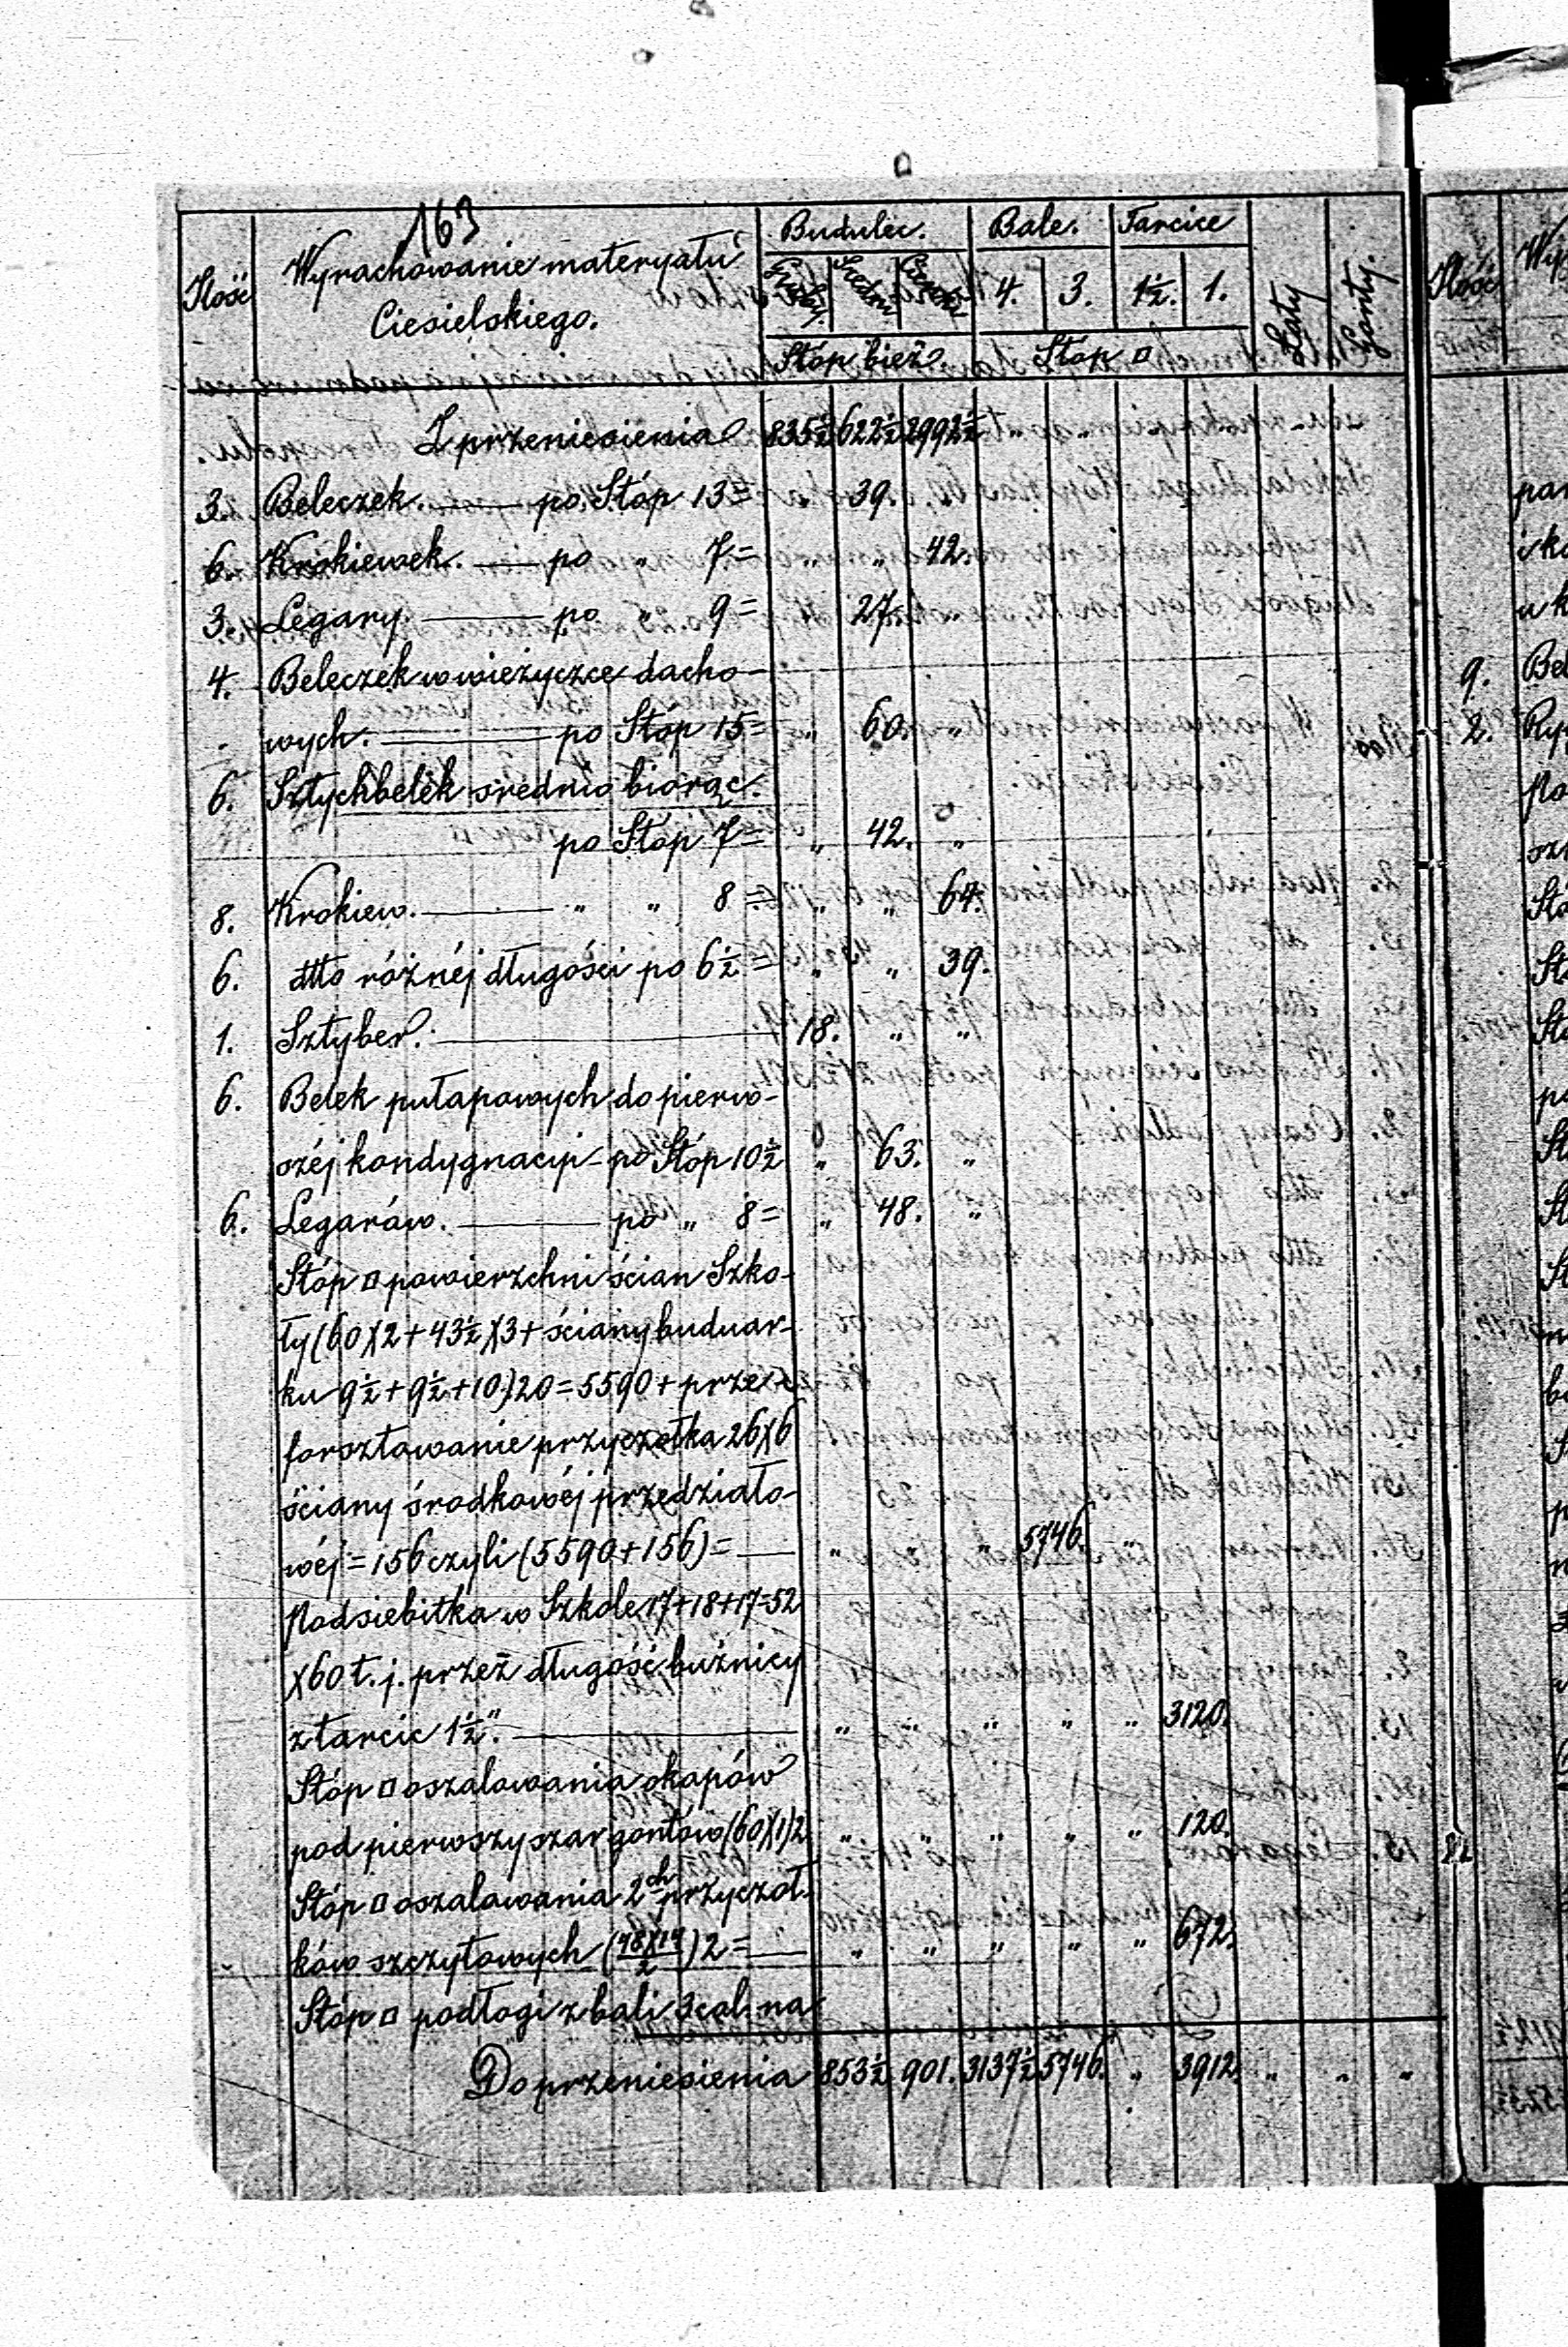 163
Ilość Wyrachowanie materyału Budulec. Bale. Tarcice
Ciesielskiego. Gruby. Średni Cienki 4. 3. 1½. 1. Łaty Gonty.
Stóp bież. Stóp □
Z przeniesienia 835½ 622½ 2992½
3. Beleczek. — po Stóp 13= 39.
6. Krokiewek. — po „ 7.= „ „ 42.
3. Legary — po „ 9= 27.
4. Beleczek w wieżyczce dacho-
wych. — po Stóp 15= „ 60. „
6. Sztychbelek średnio biorąc.
po Stóp 7= „ 42. „
8. Krokiew. — „ „ 8= „ „ 64.
6. dtto różnéj długości po 6½= „ „ 39.
1. Sztyber. — 18. „ „
6. Belek pułapowych do pierw-
széj kondygnacyi - po Stóp 10½ „ 63. „
6. Legarów. — po „ 8= „ 48. „
Stóp □ powierzchni ścian Szko-
ły (60X2 + 43½X3 + ściany buduar-
ku 9½ + 9½ + 10)20 = 5590 + prze-
forsztowanie przyczołka 26X6
ściany środkowéj przedziało-
wéj = 156 czyli (5590+156) = — „ „ „ 5746. „
Podsiebitka w Szkole 17+18+17=52
X60 t. j. przez długość buźnicy
z tarcic 1½". — „ „ „ „ „ 3120.
Stóp □ oszalowania okapów
pod pierwszy szar gontów (60X1)2 „ „ „ „ „ 120.
Stóp □ oszalowania 2ch przyczoł-
ków szczytowych (48X14/2)2= — „ „ „ „ „ 672.
Stóp □ podłogi z bali 3 cal. na
Do przeniesienia 853½ 901. 3137½ 5746. „ 3912. „ „ „
Ilość
9.
2.